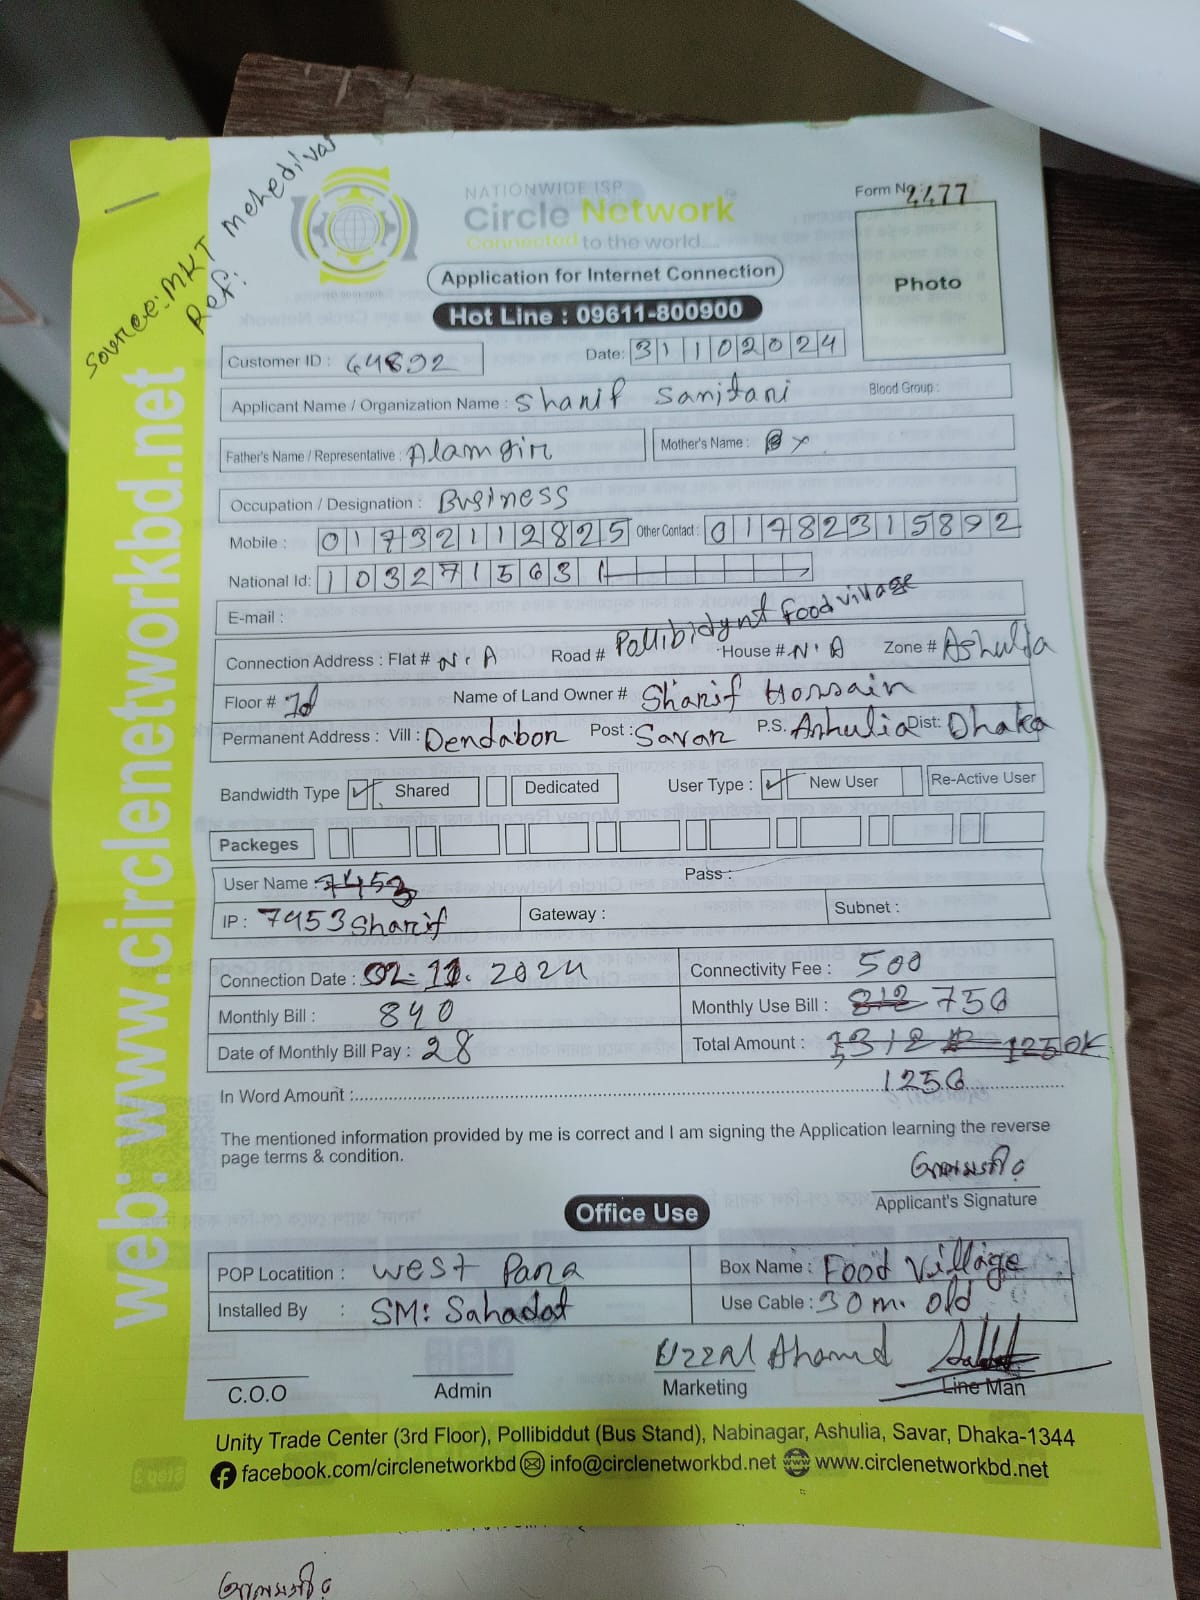 Source: MKT
Ref: Mehedivai
NATIONWIDE ISP
Circle Network
Connected to the world....
Application for Internet Connection
Hot Line : 09611-800900
Form No : 4477
Photo
Customer ID : 64892
Date: 31102024
Applicant Name / Organization Name : Sharif Sanitari
Blood Group :
Father's Name / Representative : Alamgir
Mother's Name : x
Occupation / Designation : Business
Mobile : 01732112825 Other Contact : 01782315892
National Id: 1032715631
E-mail :
Connection Address : Flat # N.A Road # Pollibidynt Food village House # N.A Zone # Ashulia
Floor # Name of Land Owner # Sharif Hossain
Permanent Address : Vill : Dendabor Post : Savar P.S. Ashulia Dist: Dhaka
Bandwidth Type ✓ Shared Dedicated User Type : ✓ New User Re-Active User
Packeges
User Name : 7453 Pass :
IP : 7453 Sharif Gateway : Subnet :
Connection Date : 02.11.2024 Connectivity Fee : 500
Monthly Bill : 840 Monthly Use Bill : 812 756
Date of Monthly Bill Pay : 28 Total Amount : 1312 125 OK
1256
In Word Amount :
The mentioned information provided by me is correct and I am signing the Application learning the reverse
page terms & condition.
আলমগীর
Applicant's Signature
Office Use
POP Locatition : West Para Box Name : Food Village
Installed By : SM: Sahadat Use Cable : 30 m. old
Uzzal Ahamed
C.O.O Admin Marketing Line Man
Unity Trade Center (3rd Floor), Pollibiddut (Bus Stand), Nabinagar, Ashulia, Savar, Dhaka-1344
facebook.com/circlenetworkbd info@circlenetworkbd.net www.circlenetworkbd.net
web: www.circlenetworkbd.net
আলমগীর